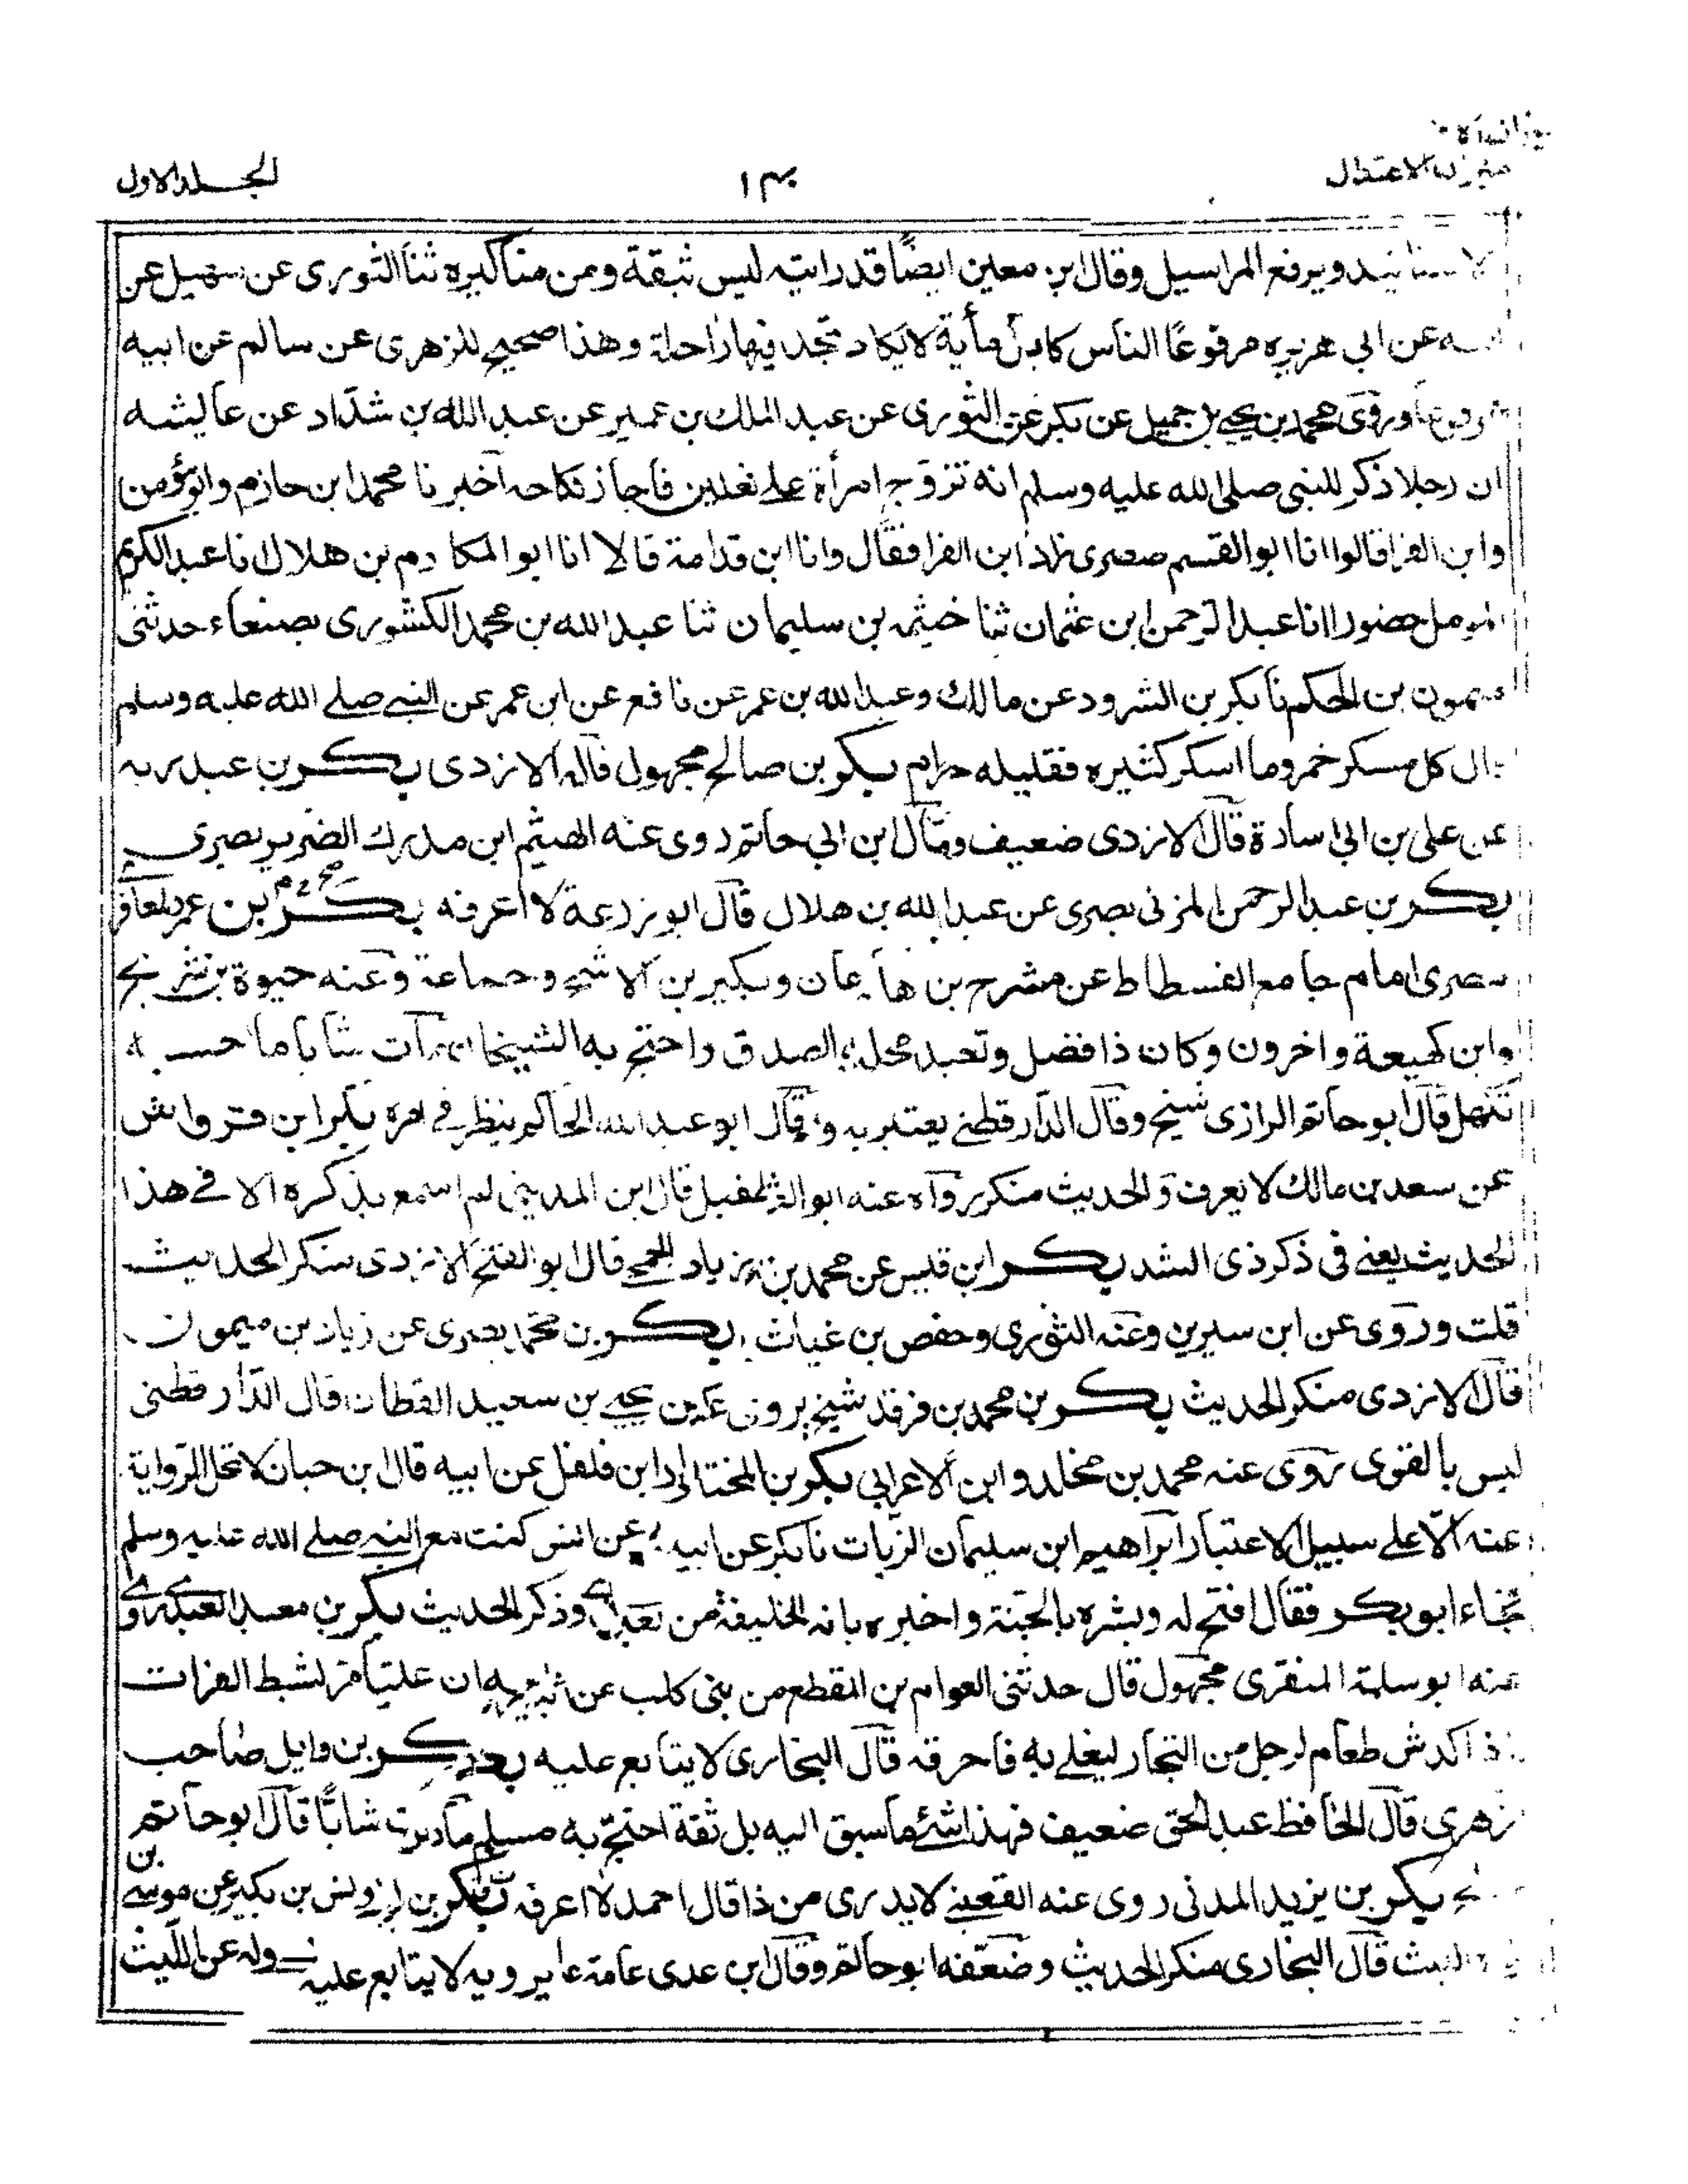 ميزان الاعتدال
١٣٠
الجلد الاول
الاسانيد ويرفع المراسيل وقال ابن معين ايضًا قد رايته ليس بثقة ومن مناكيره ثنا الثورى عن سهيل عن
ابيه عن ابي هريره مرفوعًا الناس كابل مأية لا يكاد تجد فيها راحلة وهذا صحيح للزهرى عن سالم عن ابيه
مرفوعا وروى محمد بن يحيى بن جميل عن بكر عن الثورى عن عبد الملك بن عمير عن عبد الله بن شداد عن عايشه
ان رجلا ذكر للنبى صلى الله عليه وسلم انه تزوج امرأة على نعلين فأجاز نكاحه اخبرنا محمد ابن حازم وابو مؤمن
وابن الفرا قالوا انا ابو القسم صصرى زاد ابن الفرا فقال وانا ابن قدامة قالا انا ابو المكارم بن هلال نا عبد الكريم
المومل حضورا انا عبد الرحمن ابن عثمان ثنا خيثمه بن سليمان ثنا عبد الله بن محمد الكشورى بصنعاء حدثنى
ميمون بن الحكم نا بكر بن الشرود عن مالك وعبد الله بن عمر عن نافع عن ابن عمر عن النبي صلے الله عليه وسلم
قال كل مسكر خمر وما اسكر كثيره فقليله حرام بكر بن صالح مجهول قاله الازدى بكر بن عبد ربه
عن على بن ابي سارة قال الازدى ضعيف وقال ابن ابي حاتم روى عنه الهيثم ابن مدرك الضرير بصرى
بكر بن عبد الرحمن المزنى بصرى عن عبد الله بن هلال قال ابو زرعة لا اعرفه بكر بن عمر المعافرى
مصرى امام جامع الفسطاط عن مشرح بن هاعان وبكير بن الاشج وجماعة وعنه حيوة بن شريح
وابن لهيعة واخرون وكان ذا فضل وتعبد محله الصدق واحتج به الشيخان مات شابا ما احسبه
تكهل قال ابو حاتم الرازى شيخ وقال الدارقطنى يعتبر به وقال ابو عبد الله الحاكم ينظر فى امره بكر ابن قرواش
عن سعد بن مالك لا يعرف والحديث منكر رواه عنه ابو الطفيل قال ابن المدينى لم اسمع بذكره الا فى هذا
الحديث يعنى فى ذكر ذى الثدى بكر ابن قيس عن محمد بن زياد الجمحى قال ابو الفتح الازدى منكر الحديث
قلت وروى عن ابن سيرين وعنه الثورى وحفص بن غياث بكر بن محمد بصرى عن زياد بن ميمون
قال الازدى منكر الحديث بكر بن محمد بن فرقد شيخ يروى عن يحيى بن سعيد القطان قال الدارقطنى
ليس بالقوى روى عنه محمد بن مخلد وابن الاعرابي بكر بن المختار ابن فلفل عن ابيه قال ابن حبان لا تحل الرواية
عنه الا على سبيل الاعتبار ابراهيم ابن سليمان الزيات نا بكر عن ابيه عن انس كنت مع النبي صلے الله عليه وسلم
فجاء ابو بكر فقال افتح له وبشره بالجنة واخبره بانه الخليفة من بعدى وذكر الحديث بكر بن معبد العبدى روى
عنه ابو سلمة المنقرى مجهول قال حدثنى العوام بن المقطع من بنى كلب عن ابيه ان عليًا مر لشط الفرات
اذا كدس طعام لرجل من التجار ليغلے به فاحرقه قال البخارى لا يتابع عليه بكر بن وايل صاحب
الزهرى قال الحافظ عبد الحق ضعيف فهذا شئ ما سبق اليه بل ثقة احتج به مسلم مات شابًا قال ابو حاتم
بكر بن يزيد المدنى روى عنه القعنبى لا يدرى من ذا قال احمد لا اعرفه بكر بن يونس بن بكير عن موسى بن
والليث قال البخارى منكر الحديث وضعفه ابو حاتم وقال ابن عدى عامة ما يرويه لا يتابع عليه وله عن الليث